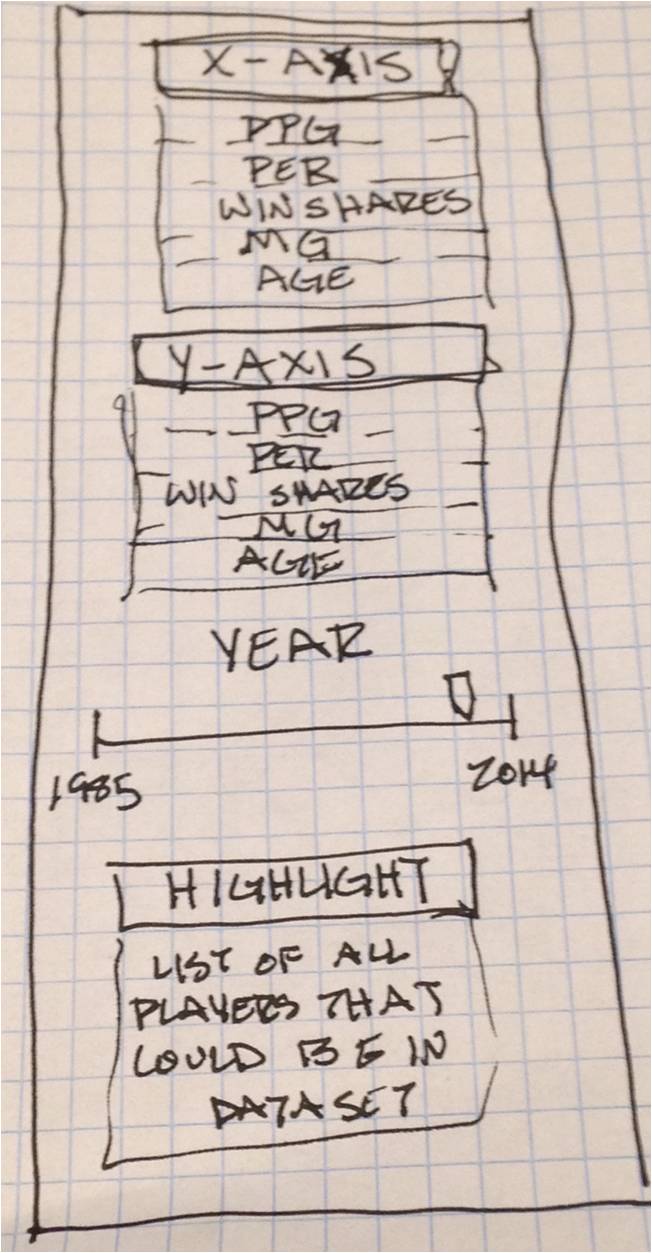 X-AXIS
PPG
PER
WIN SHARES
MG
AGE
Y-AXIS
PPG
PER
WIN SHARES
MG
AGE
YEAR
1985 2014
HIGHLIGHT
LIST OF ALL
PLAYERS THAT
COULD BE IN
DATASET